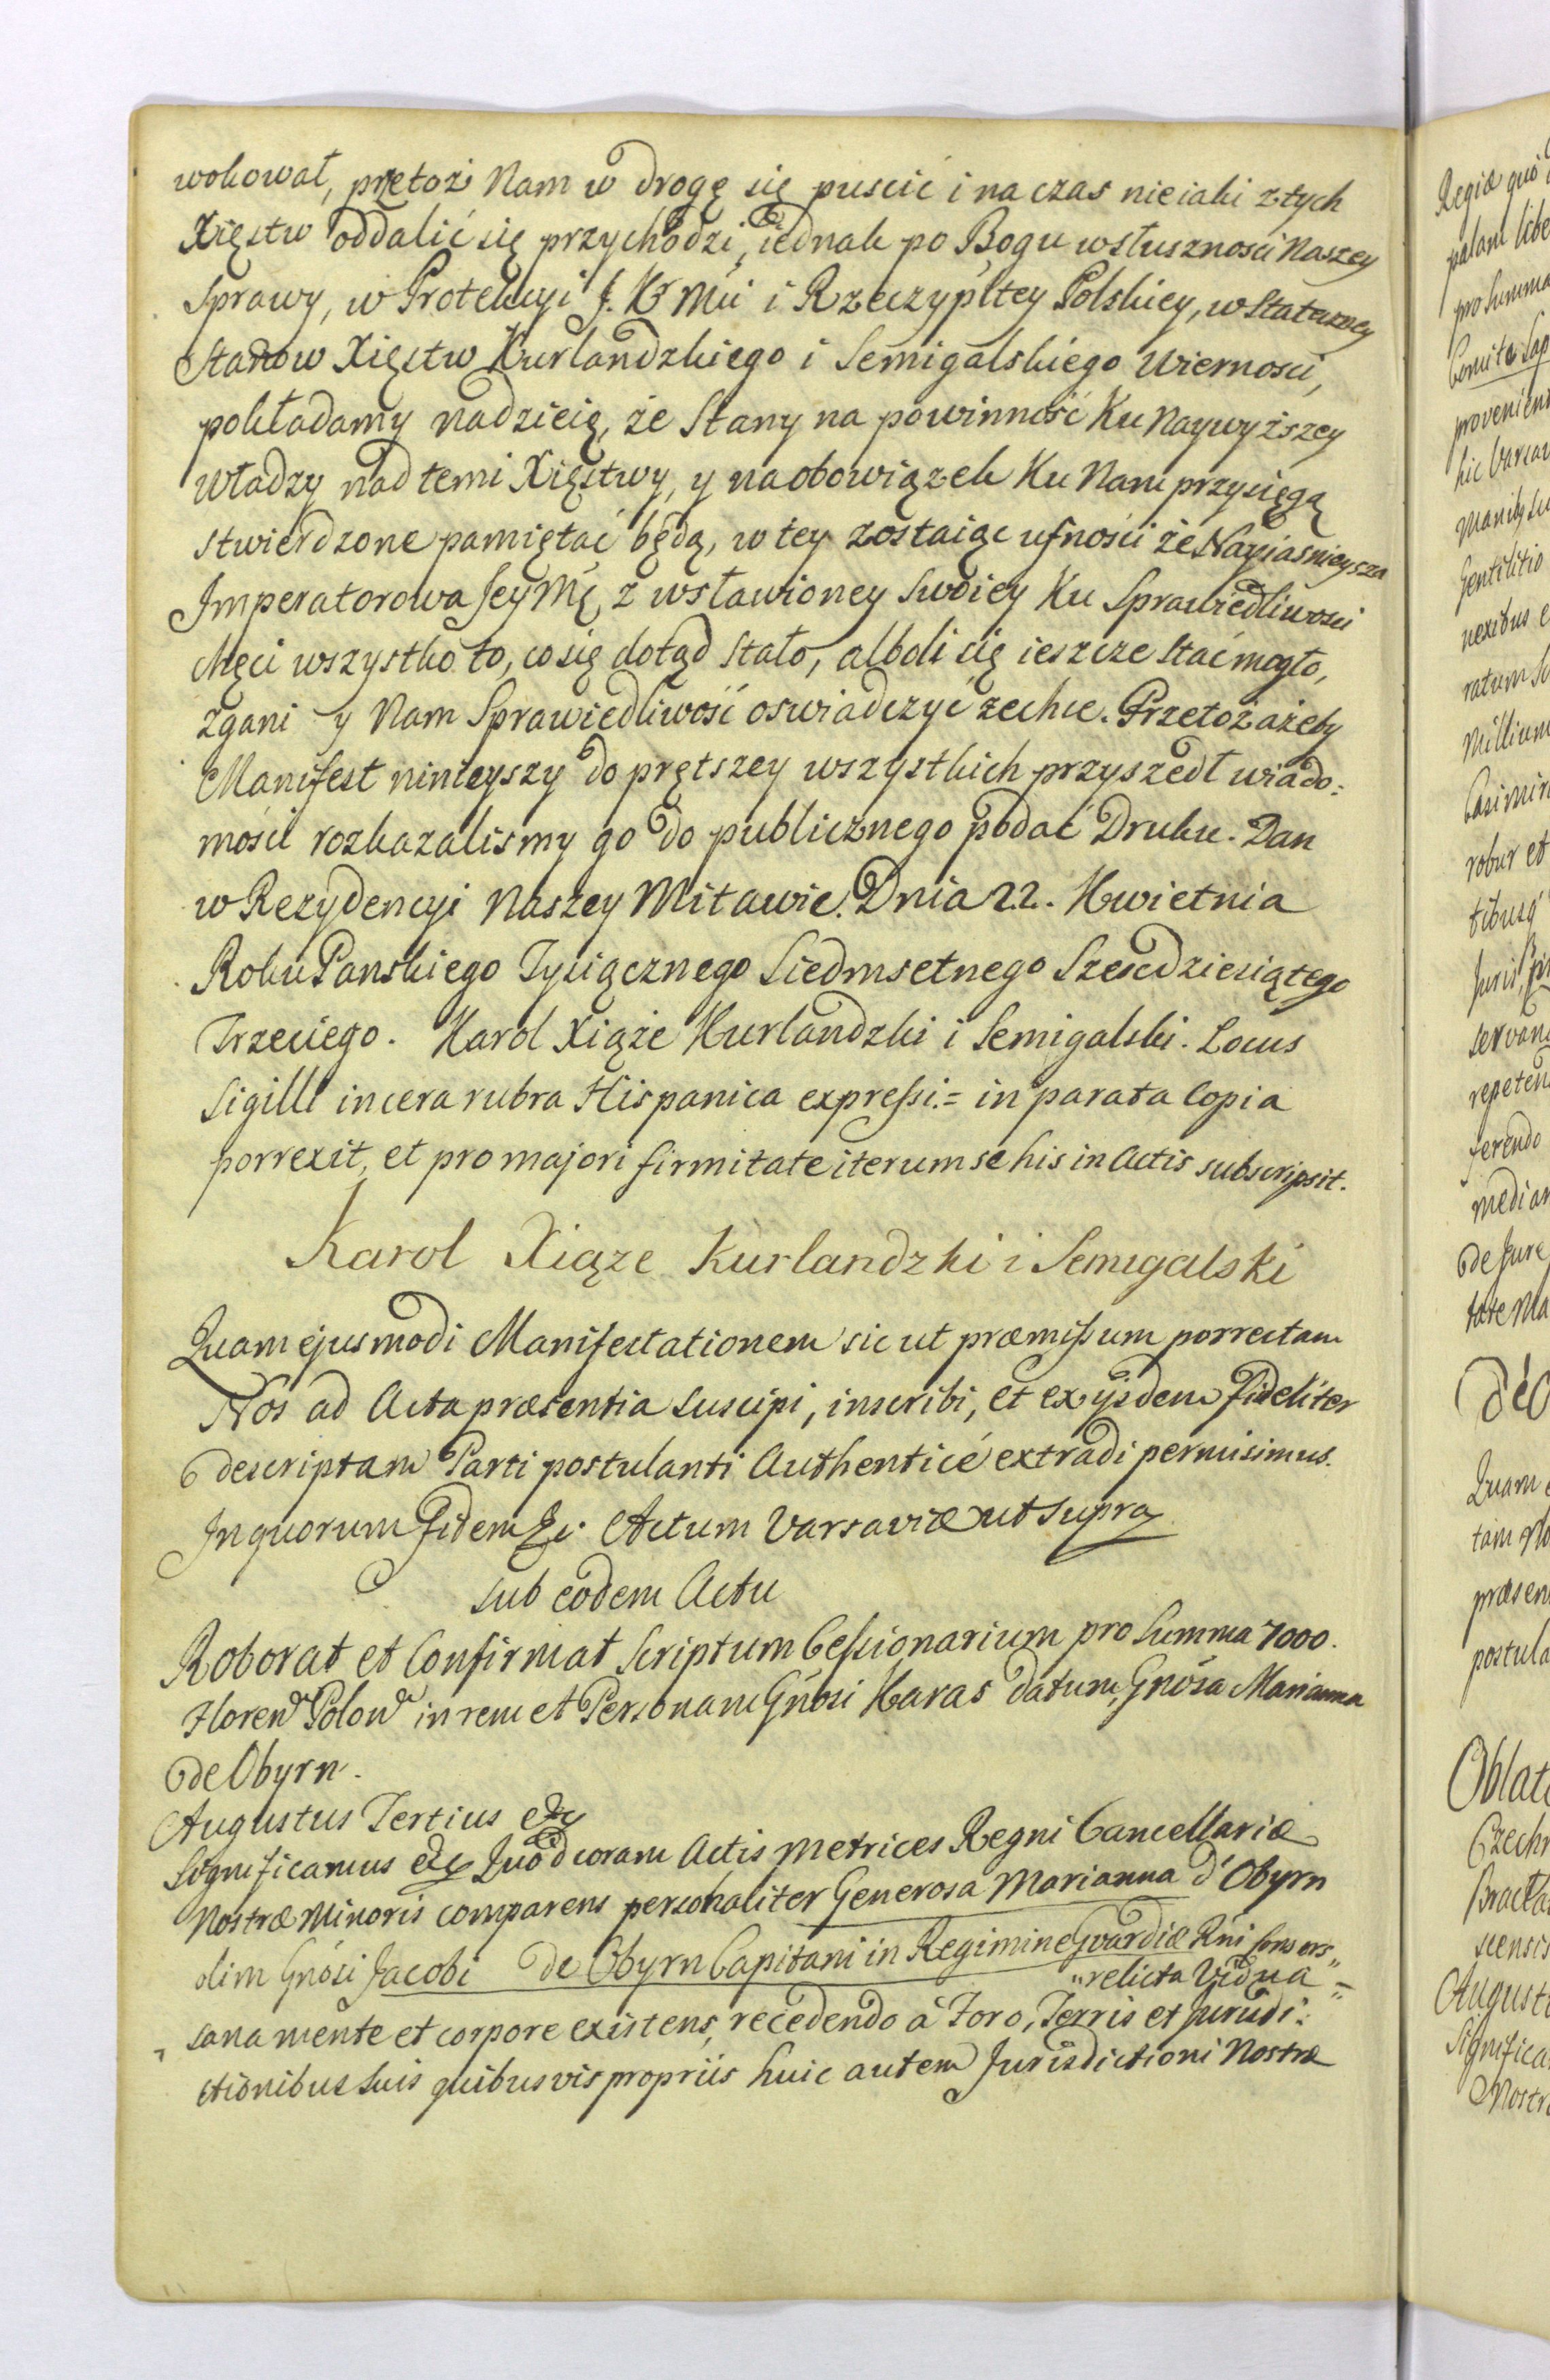 wokował, przetoż Nam w drogę się puscić i na czas nieiaki z tych
Xięstw oddalić się przychodzi, iednak po Bogu w słusznosci Naszey
Sprawy, w Protekcyi J. K Mci i Rzeczypltey Polskiey, w Stateczney
Stanow Xięstw Kurlandzkiego i Semigalskiego Wiernosci,
pokładamy nadzieię, że Stany na powinność Ku Naywyższey
Władzy nad temi Xięstwy, y na obowiązek Ku Nam przysięgą
stwierdzone pamiętać będą, w tey zostaiąc ufnosci że Nayiasnieysza
Imperatorowa Jey Mć z wsławioney Swoiey Ku Sprawiedliwosci
Chęci wszystko to, co się dotąd Stało, alboli się ieszcze Stać mogło,
zgani y Nam Sprawiedliwość oswiadczyć zechce. Przetoż ażeby
Manifest ninieyszy do prętszey wszystkich przyszedł wiado:
mości rozkazalismy go do publicznego podać Druku. Dan
w Rezydencyi Naszey Mitawie. Dnia 22. Kwietnia
Roku Panskiego Tysiącznego Siedmsetnego Szescdziesiątego
Trzeciego. Karol Xiąże Kurlandzki i Semigalski. Locus
Sigilli in cera rubra Hispanica expressi.= in parata Copia
porrexit, et pro majori firmitate iterum se his in Actis subscripsit.
Karol Xiąze Kurlandzki i Semigalski
Quam ejusmodi Manifestationem sic ut præmissum porrectam
Nos ad Acta præsentia suscipi, inscribi, et ex ijsdem fideliter
descriptam Parti postulanti Authenticé extradi permisimus.
In quorum Fidem &c. Actum Varsaviæ ut supra
sub eodem Actu
Roborat et Confirmat Scriptum Cessionarium pro Summa 7000.
Floren Polon in rem et Personam Gnosi Karas datum, Gnosa Marianna
de Obyrn.
Augustus Tertius &c
Significamus &c Quod coram Actis Metrices Regni Cancellariæ
Nostræ Minoris comparens personaliter Generosa Marianna d'Obyrn
olim Gnosi Jacobi de Obyrn Capitani in Regimine Gvardiæ Rni consors
"relicta Vidua"
sana mente et corpore existens, recedendo à Foro, Terris et Jurisdi:
ctionibus suis quibusvis propriis huic autem Jurisdictioni Nostræ
Regiæ
palam
pro Summa
Comite
hic
Gentilitio
nexibus
ratum
Millium
robur et
ferendo
de Jure
Quam
tam
postula